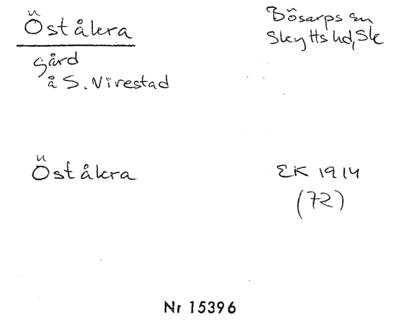 Öståkra
Bösarps sn
Skytts hd, Sk
gård
å S. Virestad
Öståkra
EK 1914
(72)
Nr 15396